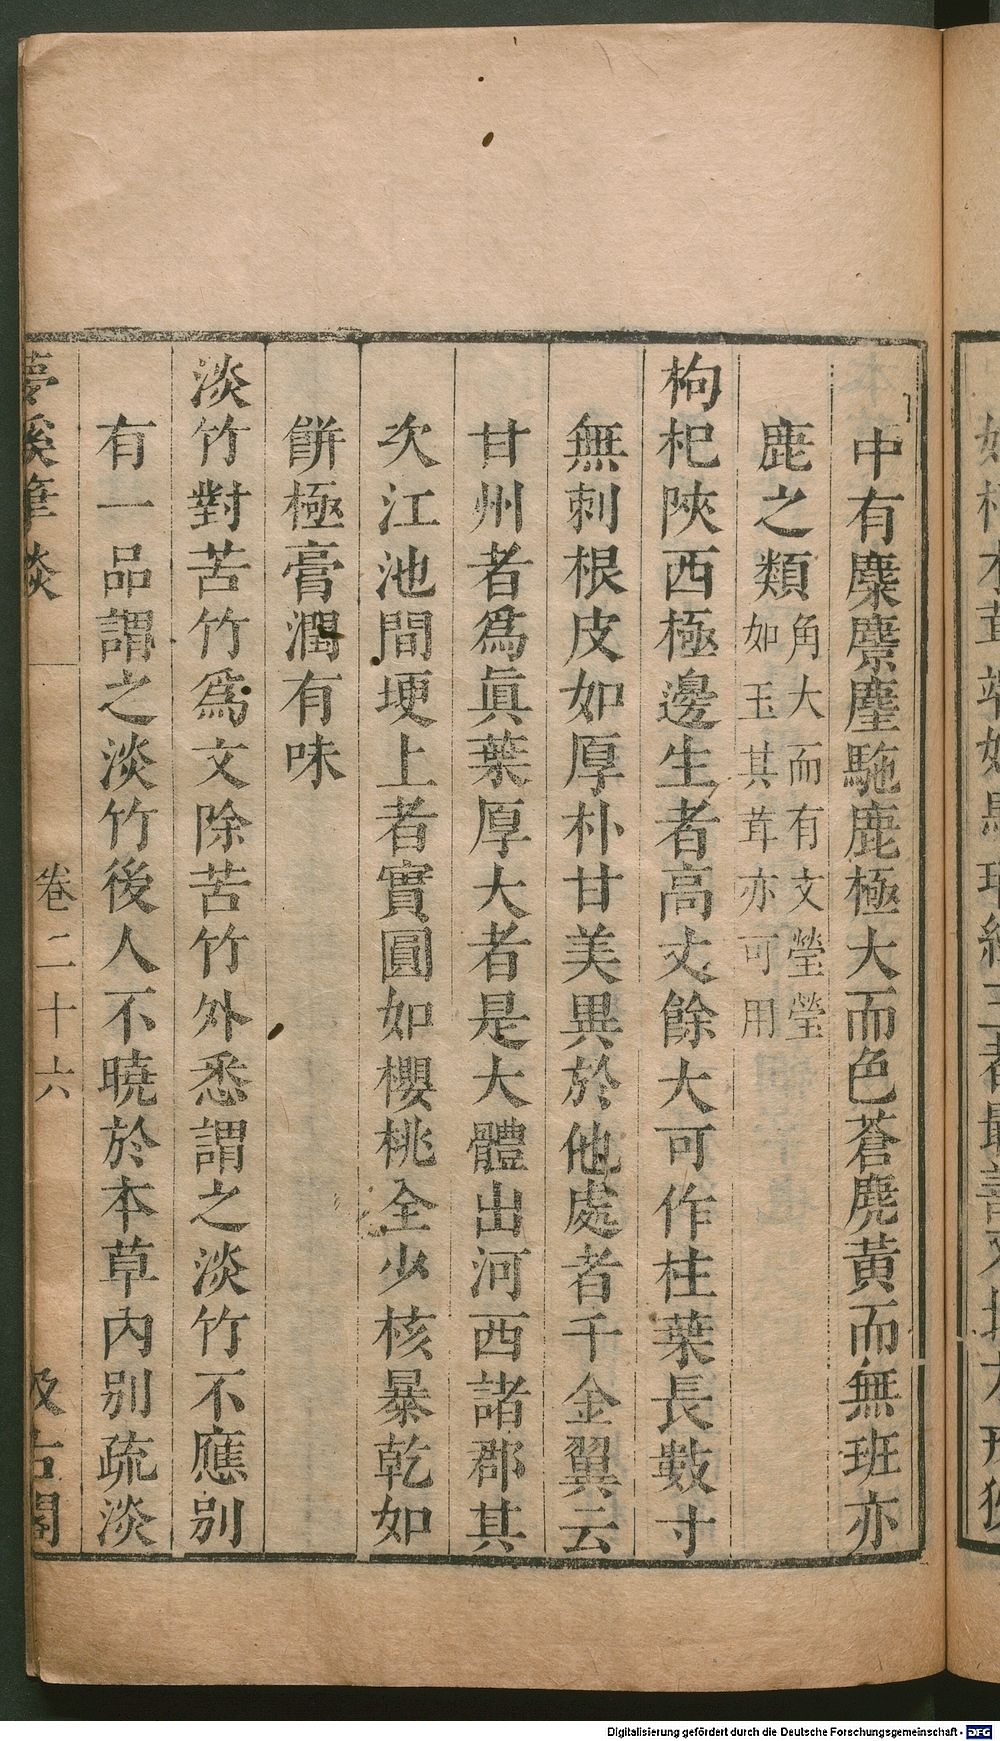 中有麋麖麈駞鹿極大而色蒼麂黄而無班亦
鹿之類角大而有文瑩瑩如玉其茸亦可用
枸杞陜西極邊生者高丈餘大可作柱葉長數寸
無刺根皮如厚朴甘美異於他處者千金翼云
甘州者爲眞葉厚大者是大體出河西諸郡其
次江池間埂上者實圓如櫻桃全少核暴乾如
餅極膏潤有味
淡竹對苦竹爲文除苦竹外悉謂之淡竹不應别
有一品謂之淡竹後人不曉於本草內别疏淡
夢溪筆談 卷二十六 汲古閣
Digitalisierung gefördert durch die Deutsche Forschungsgemeinschaft - DFG